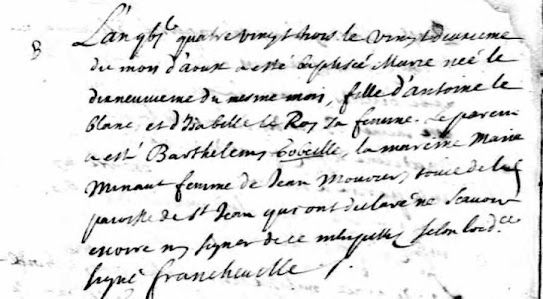 B L'an gbjc quatrevingt trois le vingt deuxieme
du mois d'aoust a esté baptisée Marie neé le
dixneuvieme du mesme mois, fille d'antoine le
blanc et d'Isabelle le Roy sa femme. Le parein
a esté Barthelemy, la mareine Marie
Minaut femme de Jean, tous de la
paroisse de St Jean qui ont declaré ne scavoir
escrire ny signer de ce interpellez selon lord.ce
signé francheville